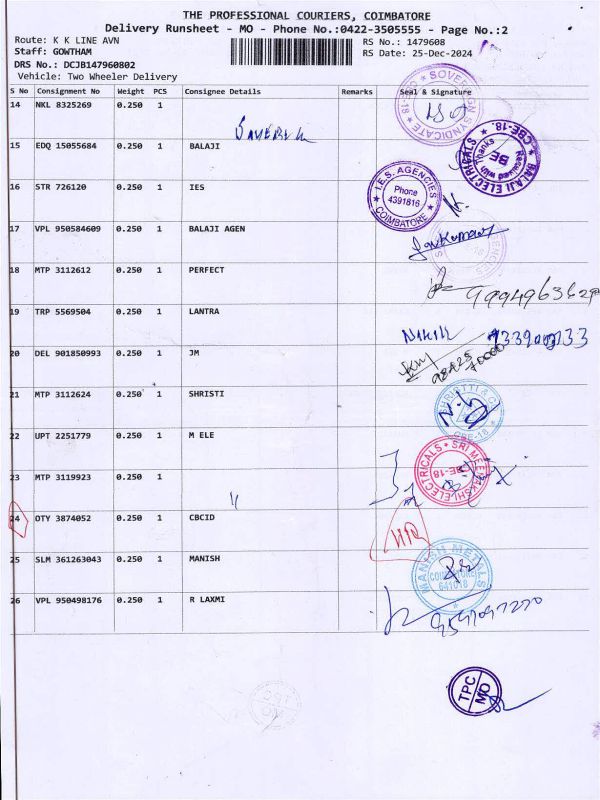 THE PROFESSIONAL COURIERS, COIMBATORE
Delivery Runsheet - MO - Phone No.:0422-3505555 - Page No.:2
Route: K K LINE AVN
RS No.: 1479608
Staff: GOWTHAM
RS Date: 25-Dec-2024
DRS No.: DCJB147960802
Vehicle: Two Wheeler Delivery
S No Consignment No Weight PCS Consignee Details Remarks Seal & Signature
14 NKL 8325269 0.250 1
SOVEREIGN SYNDICATE
15 EDQ 15055684 0.250 1 BALAJI
BALAJI ELECTRICALS CBE-18. Received with Thanks
16 STR 726120 0.250 1 IES
I.E.S. AGENCIES Phone 4391816 COIMBATORE
17 VPL 950584609 0.250 1 BALAJI AGEN
18 MTP 3112612 0.250 1 PERFECT
19 TRP 5569504 0.250 1 LANTRA
20 DEL 901850993 0.250 1 JM
21 MTP 3112624 0.250 1 SHRISTI
CBE-18
22 UPT 2251779 0.250 1 M ELE
SRI MEENAKSHI ELECTRICALS CBE-18
23 MTP 3119923 0.250 1 "
24 OTY 3874052 0.250 1 CBCID
25 SLM 361263043 0.250 1 MANISH
MANISH METALS COIMBATORE 641018
26 VPL 950498176 0.250 1 R LAXMI
TPC MO